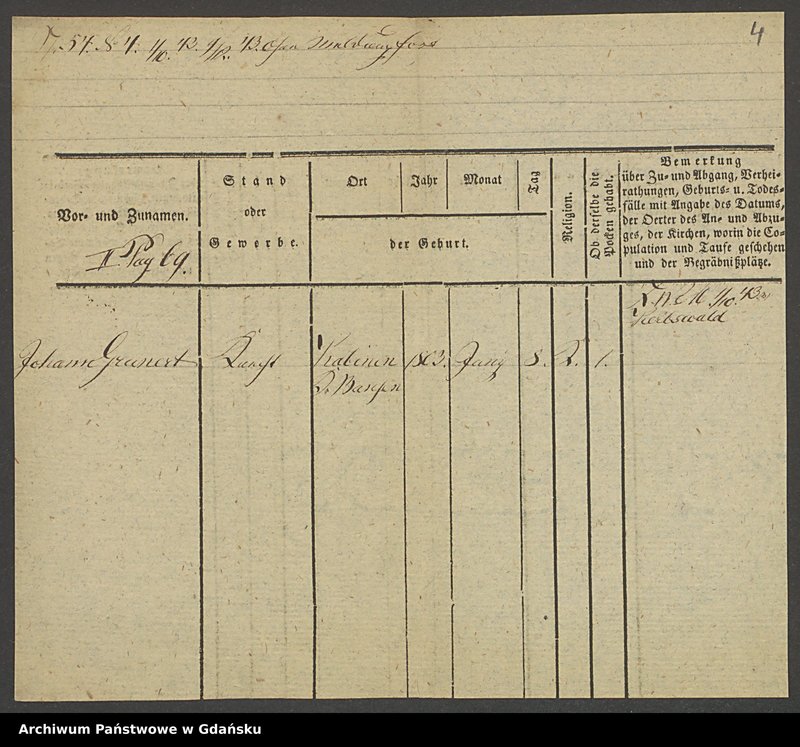 4
54. 84. 1/10. 43. 1/12. 43. ohne Meldung fort
Vor- und Zunamen.
II Pag 69.
Stand
oder
Gewerbe.
Ort
Jahr
Monat
Tag
der Geburt.
Religion.
Ob derselbe die
Pocken gehabt.
Bemerkung
über Zu- und Abgang, Verhei-
rathungen, Geburts- u. Todes-
fälle mit Angabe des Datums,
der Oerter des An- und Abzu-
ges, der Kirchen, worin die Co-
pulation und Taufe geschehen
und der Begräbnißplätze.
1/10. 43.
Johann Grunert
Knecht
Kadinen
1803.
Juny
8.
K.
1.